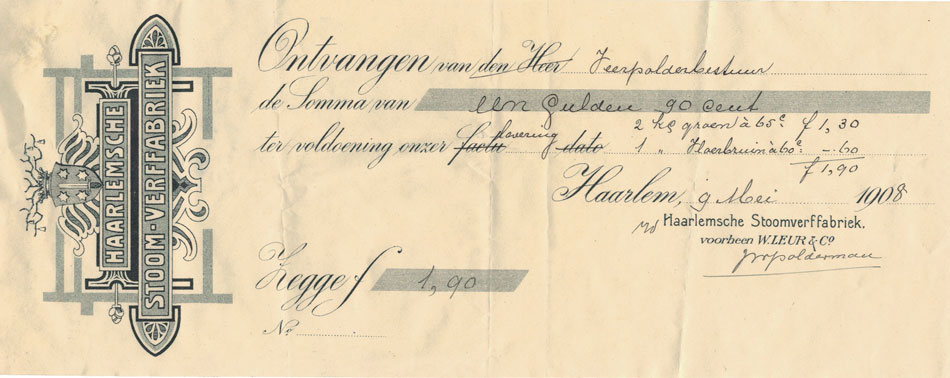 HAARLEMSCHE
STOOM-VERFFABRIEK
Ontvangen van den Heer Veerpolderbestuur
de Somma van een Gulden 90 cent
levering 2 kg groen à 65c f 1,30
ter voldoening onzer factu dato 1 „ Vloerbruin à 60c: -.60
f 1,90
Haarlem, 9 Mei 1908
Haarlemsche Stoomverffabriek.
voorheen W. LEUR & Co
JWPolderman
Zegge f 1,90
No.